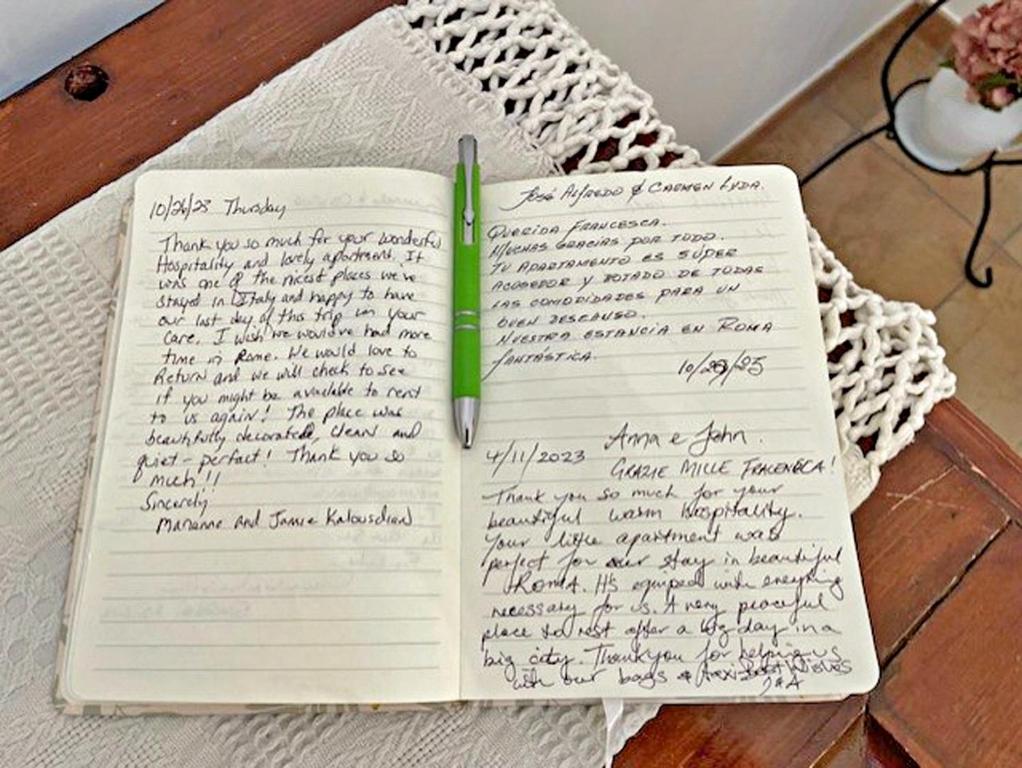 10/26/23 Thursday
Thank you so much for your wonderful
Hospitality and lovely apartment. It
was one of the nicest places we've
stayed in Italy and happy to have
our last day of this trip in your
care. I wish we would've had more
time in Rome. We would love to
Return and we will check to see
if you might be available to rent
to us again! The place was
beautifully decorated, clean and
quiet - perfect! Thank you so
much!!
Sincerely
Marianne and Jamie Kalousdian
José Alfredo & Carmen Lyda.
Querida Francesca.
Muchas gracias por todo.
Tu apartamento es súper
acogedor y dotado de todas
las comodidades para un
buen descanso.
Nuestra estancia en Roma
fantástica.
10/29/23
Anna e John.
4/11/2023
Grazie Mille
Thank you so much for your
beautiful warm hospitality.
Your little apartment was
perfect for our stay in beautiful
Roma. It's equiped with everything
necessary for us. A very peaceful
place to rest after a big day in a
big city. Thankyou for helping us
with our bags & taxi. Best Wishes
J&A